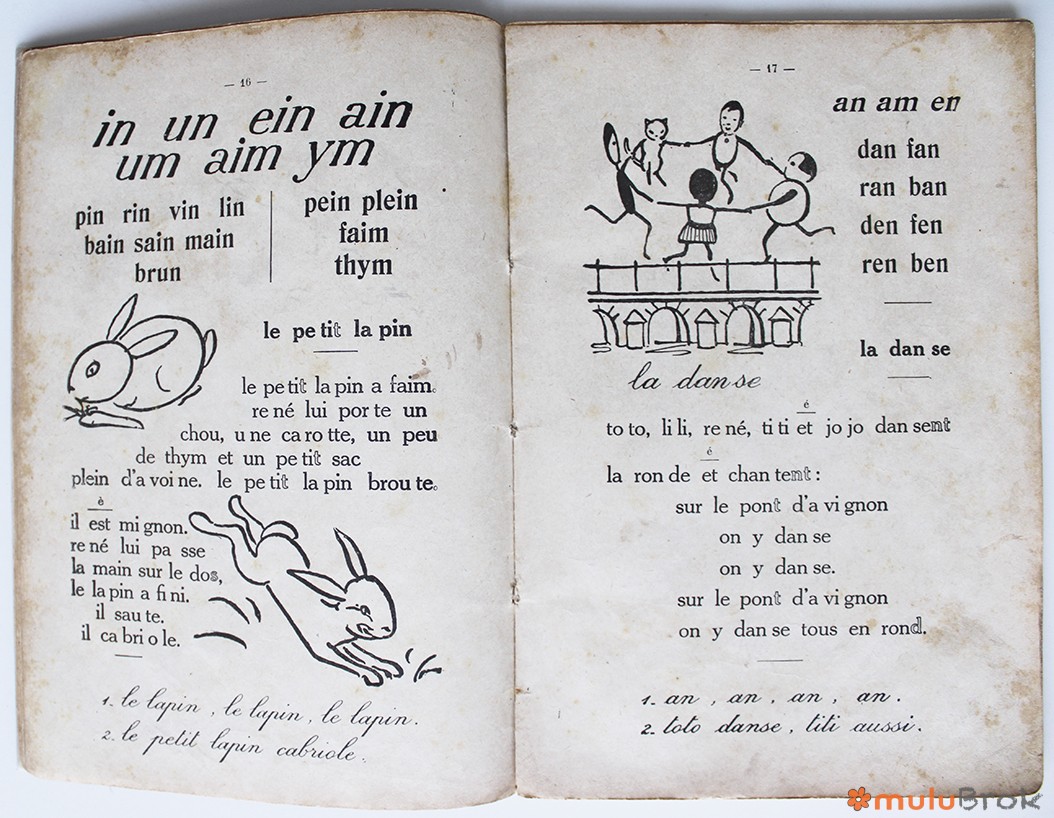 — 16 —
in un ein ain
um aim ym
pin rin vin lin
bain sain main
brun
pein plein
faim
thym
le pe tit la pin
le pe tit la pin a faim.
re né lui por te un
chou, u ne ca ro tte, un peu
de thym et un pe tit sac
plein d'a voi ne. le pe tit la pin brou te.
è
il est mi gnon.
re né lui pa sse
la main sur le dos,
le la pin a fi ni.
il sau te.
il ca bri o le.
1. le lapin, le lapin, le lapin.
2. le petit lapin cabriole.
— 17 —
an am en
dan fan
ran ban
den fen
ren ben
la dan se
la danse
é
to to, li li, re né, ti ti et jo jo dan sent
é
la ron de et chan tent :
sur le pont d'a vi gnon
on y dan se
on y dan se.
sur le pont d'a vi gnon
on y dan se tous en rond.
1. an, an, an, an.
2. toto danse, titi aussi.
muluBrok